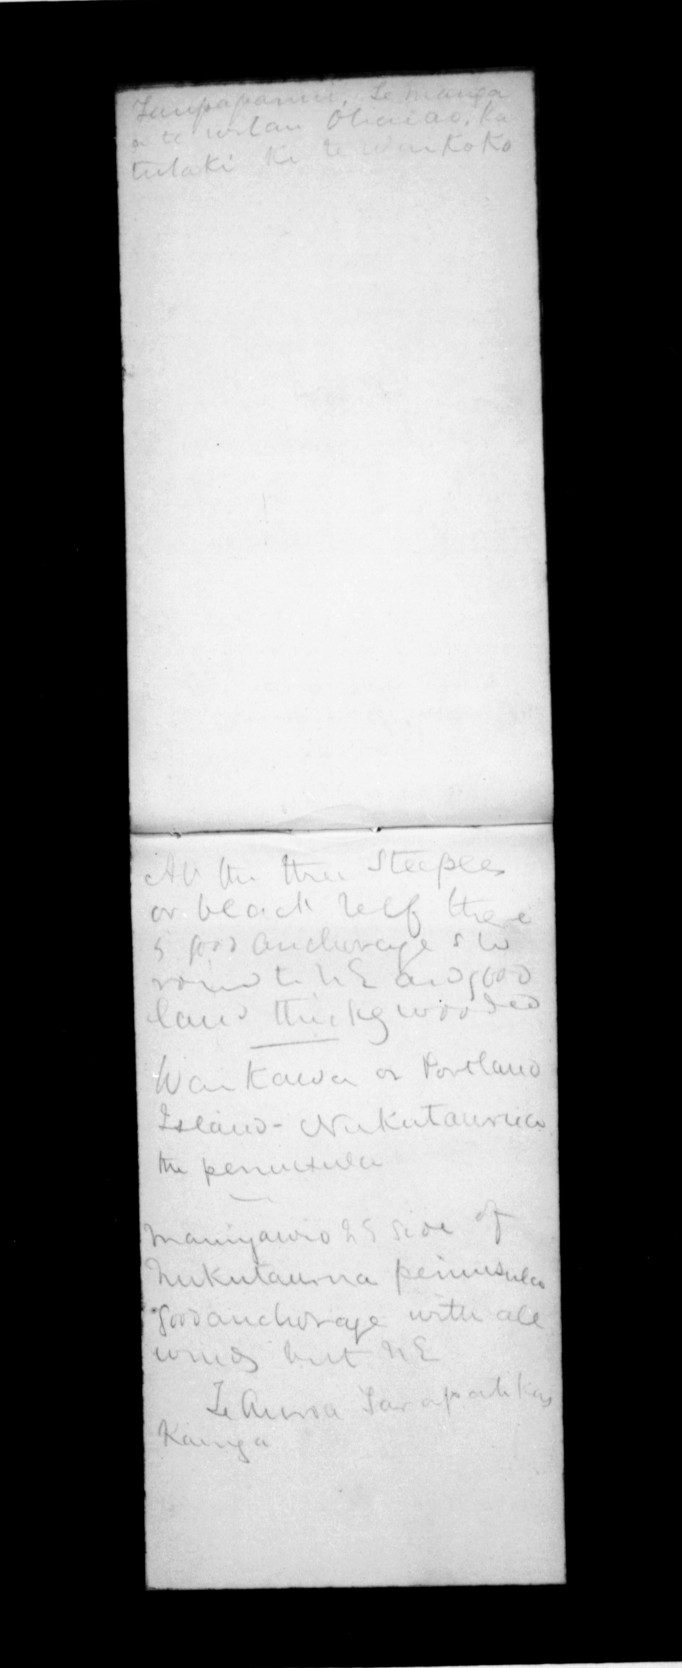 Te manga
o te Ohaeao. Ka
tutaki ki te Waikoko
At the three Steeples
or black Reef there
is good anchorage SW
round to NE and good
land thickly wooded
Waikawa or Portland
Island - Nukutaurua
the peninsula
NE side of
Nukutaurua peninsula
good anchorage with all
winds but NE
Te
Kainga